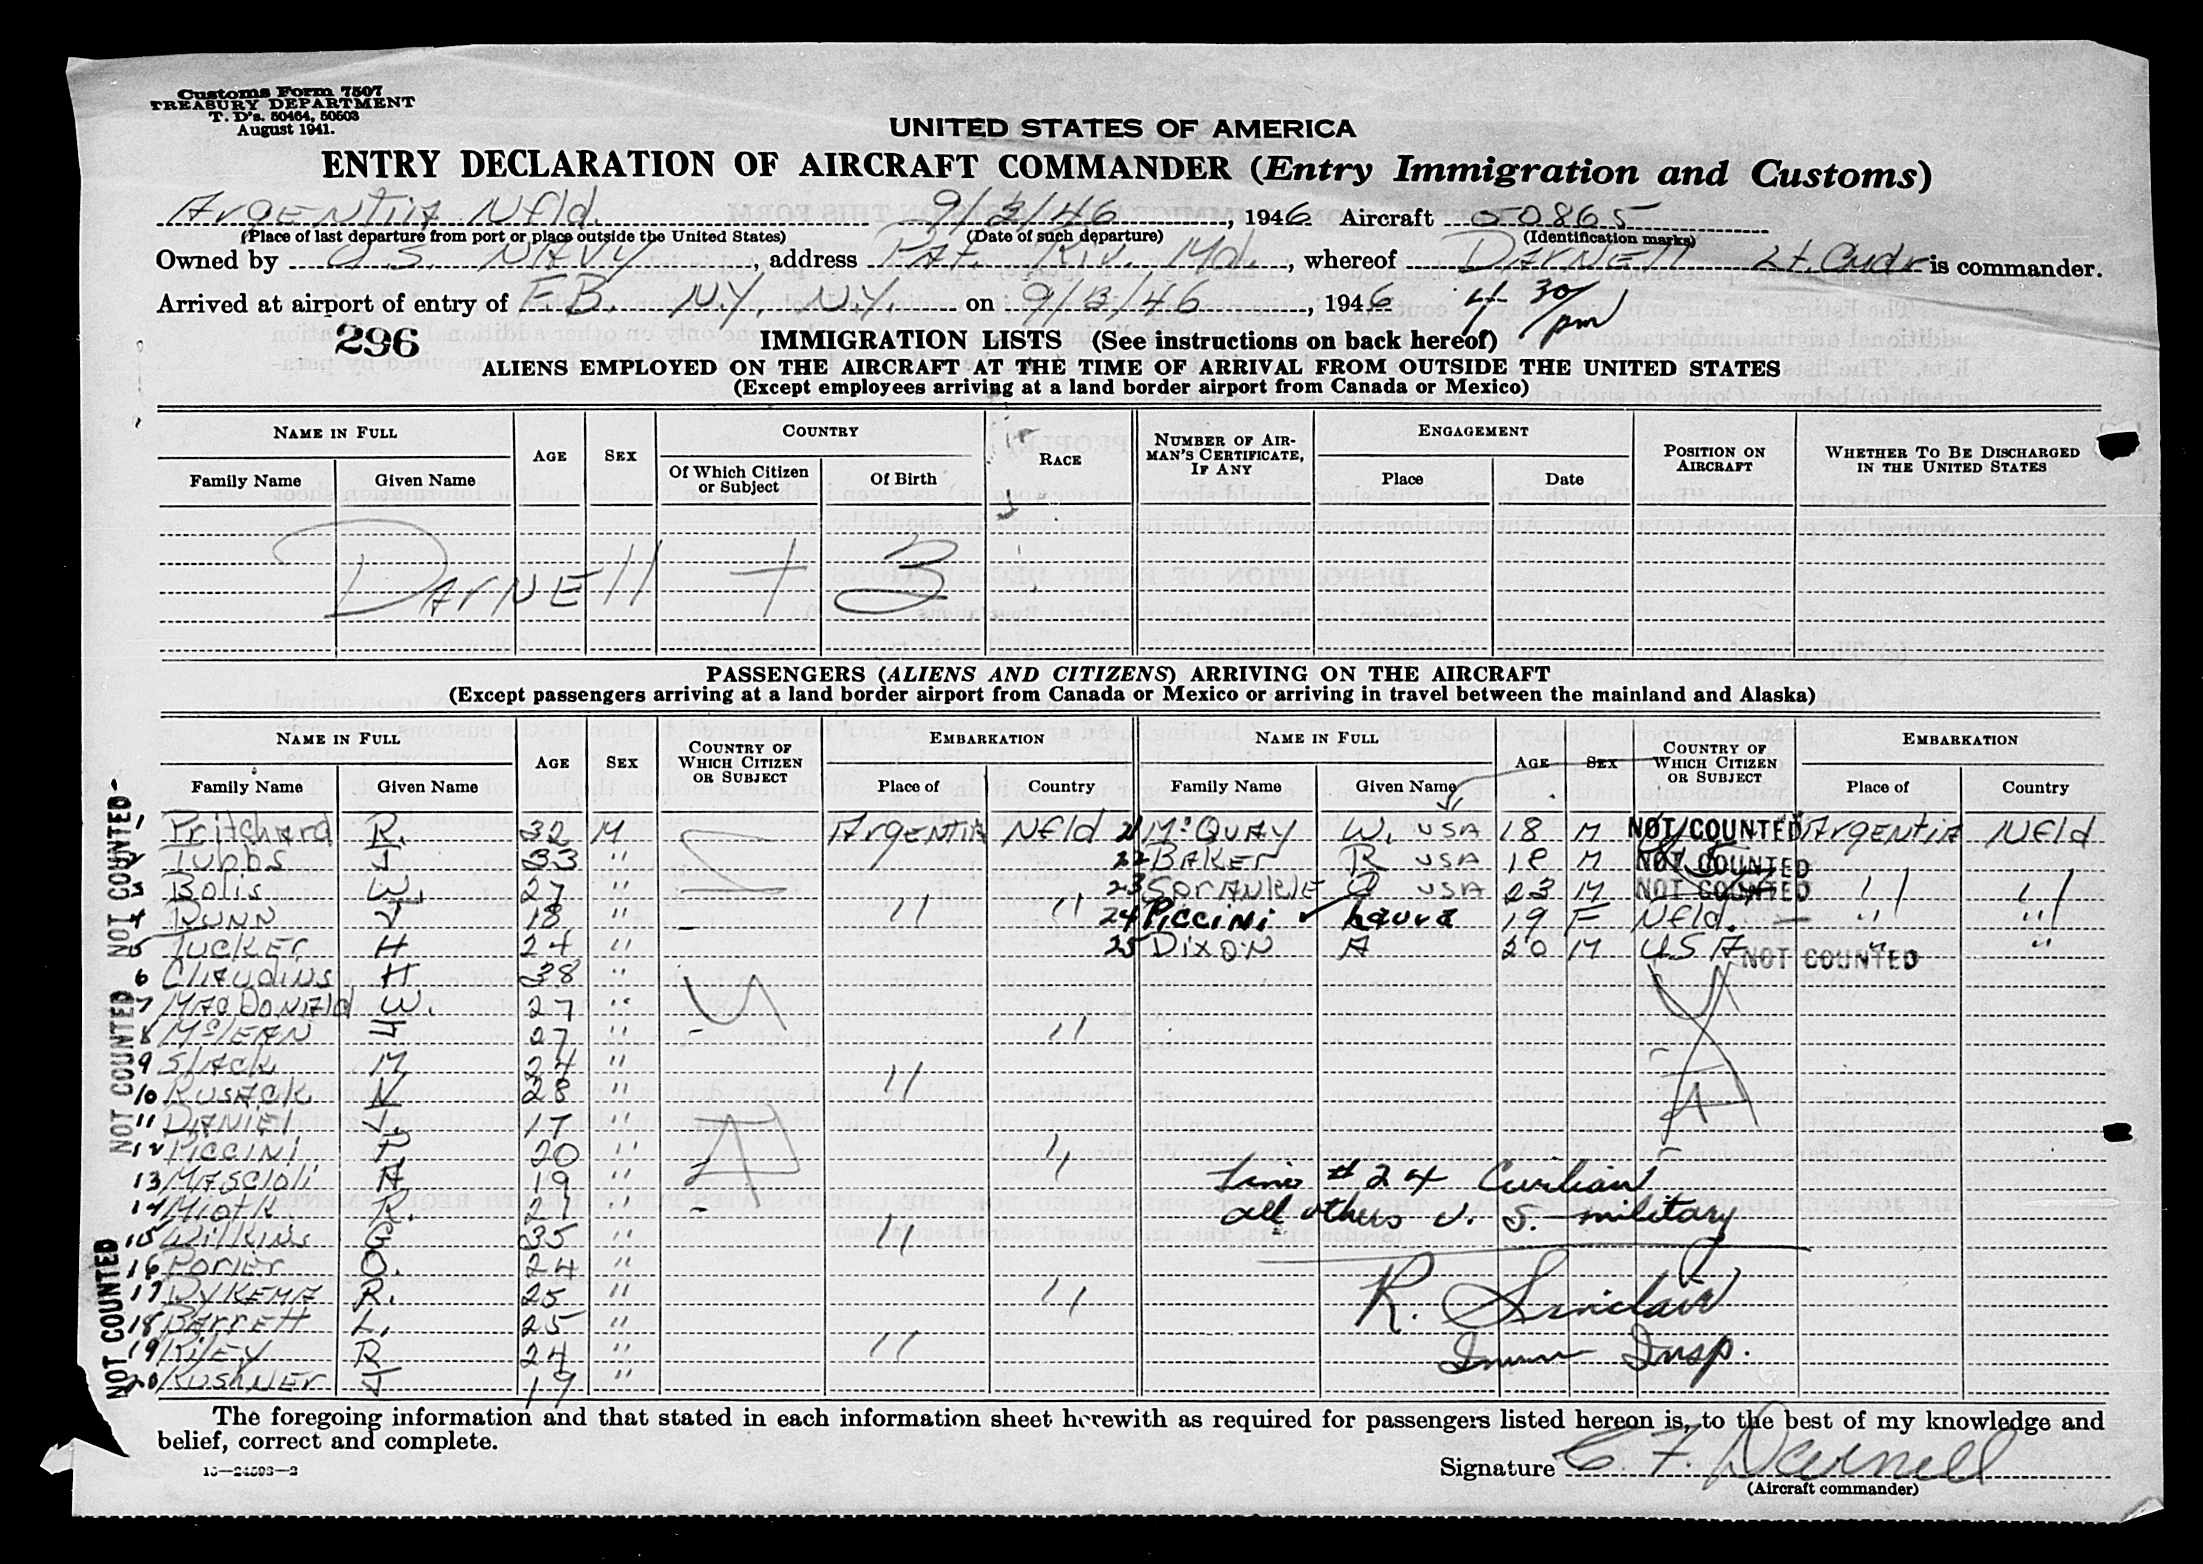 Customs Form 7507
TREASURY DEPARTMENT
T. D's. 50464, 50503
August 1941.
UNITED STATES OF AMERICA
ENTRY DECLARATION OF AIRCRAFT COMMANDER (Entry Immigration and Customs)
Argentia Nfld. 9/3/46, 1946 Aircraft 50865
(Place of last departure from port or place outside the United States) (Date of such departure) (Identification marks)
Owned by U.S. NAVY, address Pat. Riv. Md., whereof DARNEll Lt. Cmdr is commander.
Arrived at airport of entry of F.B. N.Y. N.Y. on 9/3/46, 1946 4 30/pm
296
IMMIGRATION LISTS (See instructions on back hereof)
ALIENS EMPLOYED ON THE AIRCRAFT AT THE TIME OF ARRIVAL FROM OUTSIDE THE UNITED STATES
(Except employees arriving at a land border airport from Canada or Mexico)
NAME IN FULL AGE SEX COUNTRY RACE NUMBER OF AIRMAN'S CERTIFICATE, IF ANY ENGAGEMENT POSITION ON AIRCRAFT WHETHER TO BE DISCHARGED IN THE UNITED STATES
Family Name Given Name Of Which Citizen or Subject Of Birth Place Date
DARNEll + 3
PASSENGERS (ALIENS AND CITIZENS) ARRIVING ON THE AIRCRAFT
(Except passengers arriving at a land border airport from Canada or Mexico or arriving in travel between the mainland and Alaska)
NAME IN FULL AGE SEX COUNTRY OF WHICH CITIZEN OR SUBJECT EMBARKATION NAME IN FULL AGE SEX COUNTRY OF WHICH CITIZEN OR SUBJECT EMBARKATION
Family Name Given Name Place of Country Family Name Given Name Place of Country
1 Pritchard R. 32 M Argentia Nfld 21 McQuay W. USA 18 M NOT COUNTED Argentia Nfld
2 Tubbs J 33 " 22 Baker R USA 18 M NOT COUNTED
3 Bolis W. 27 " 23 Sprankle USA 23 M NOT COUNTED " "
4 Nunn J 18 " " " 24 Piccini ✓ Laura 19 F Nfld. — " "
5 Tucker H 24 " 25 Dixon A 20 M USA NOT COUNTED " "
6 Claudins H 38 "
7 MacDonald W. 27 "
8 McLean H 27 " "
9 Slack M 24 "
10 Rusack N 28 " "
11 Daniel J. 17 "
12 Piccini P. 20 " "
13 Mascioli A 19 "
14 Miotk R. 21 "
15 Wilkins G 35 " "
16 Porier O. 24 "
17 Dykema R. 25 " "
18 Barrett L. 25 "
19 Riley R 24 " "
20 Kushner J 19 "
USA
USA
NOT COUNTED
NOT COUNTED
NOT COUNTED
NOT COUNTED
Line #24 Civilian
all others U.S. military
R. Sinclair
Imm Insp.
The foregoing information and that stated in each information sheet herewith as required for passengers listed hereon is, to the best of my knowledge and
belief, correct and complete.
Signature C. F. Darnell
(Aircraft commander)